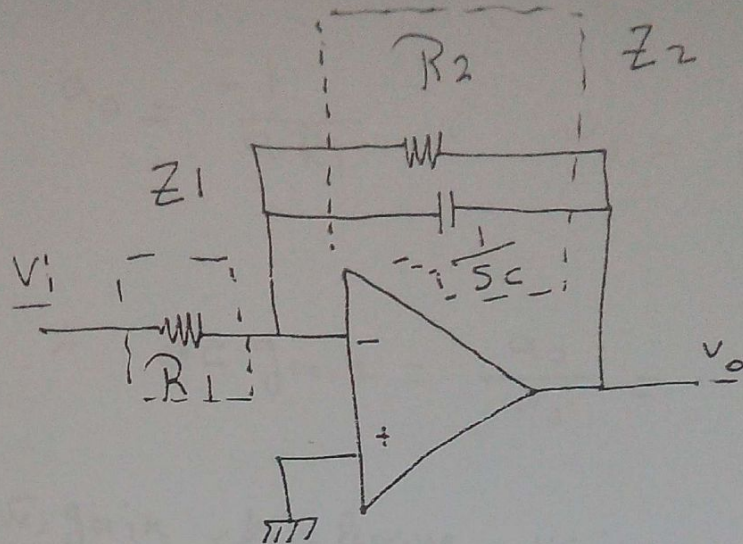 R2
Z2
Z1
1
SC
Vi
R1
-
+
Vo